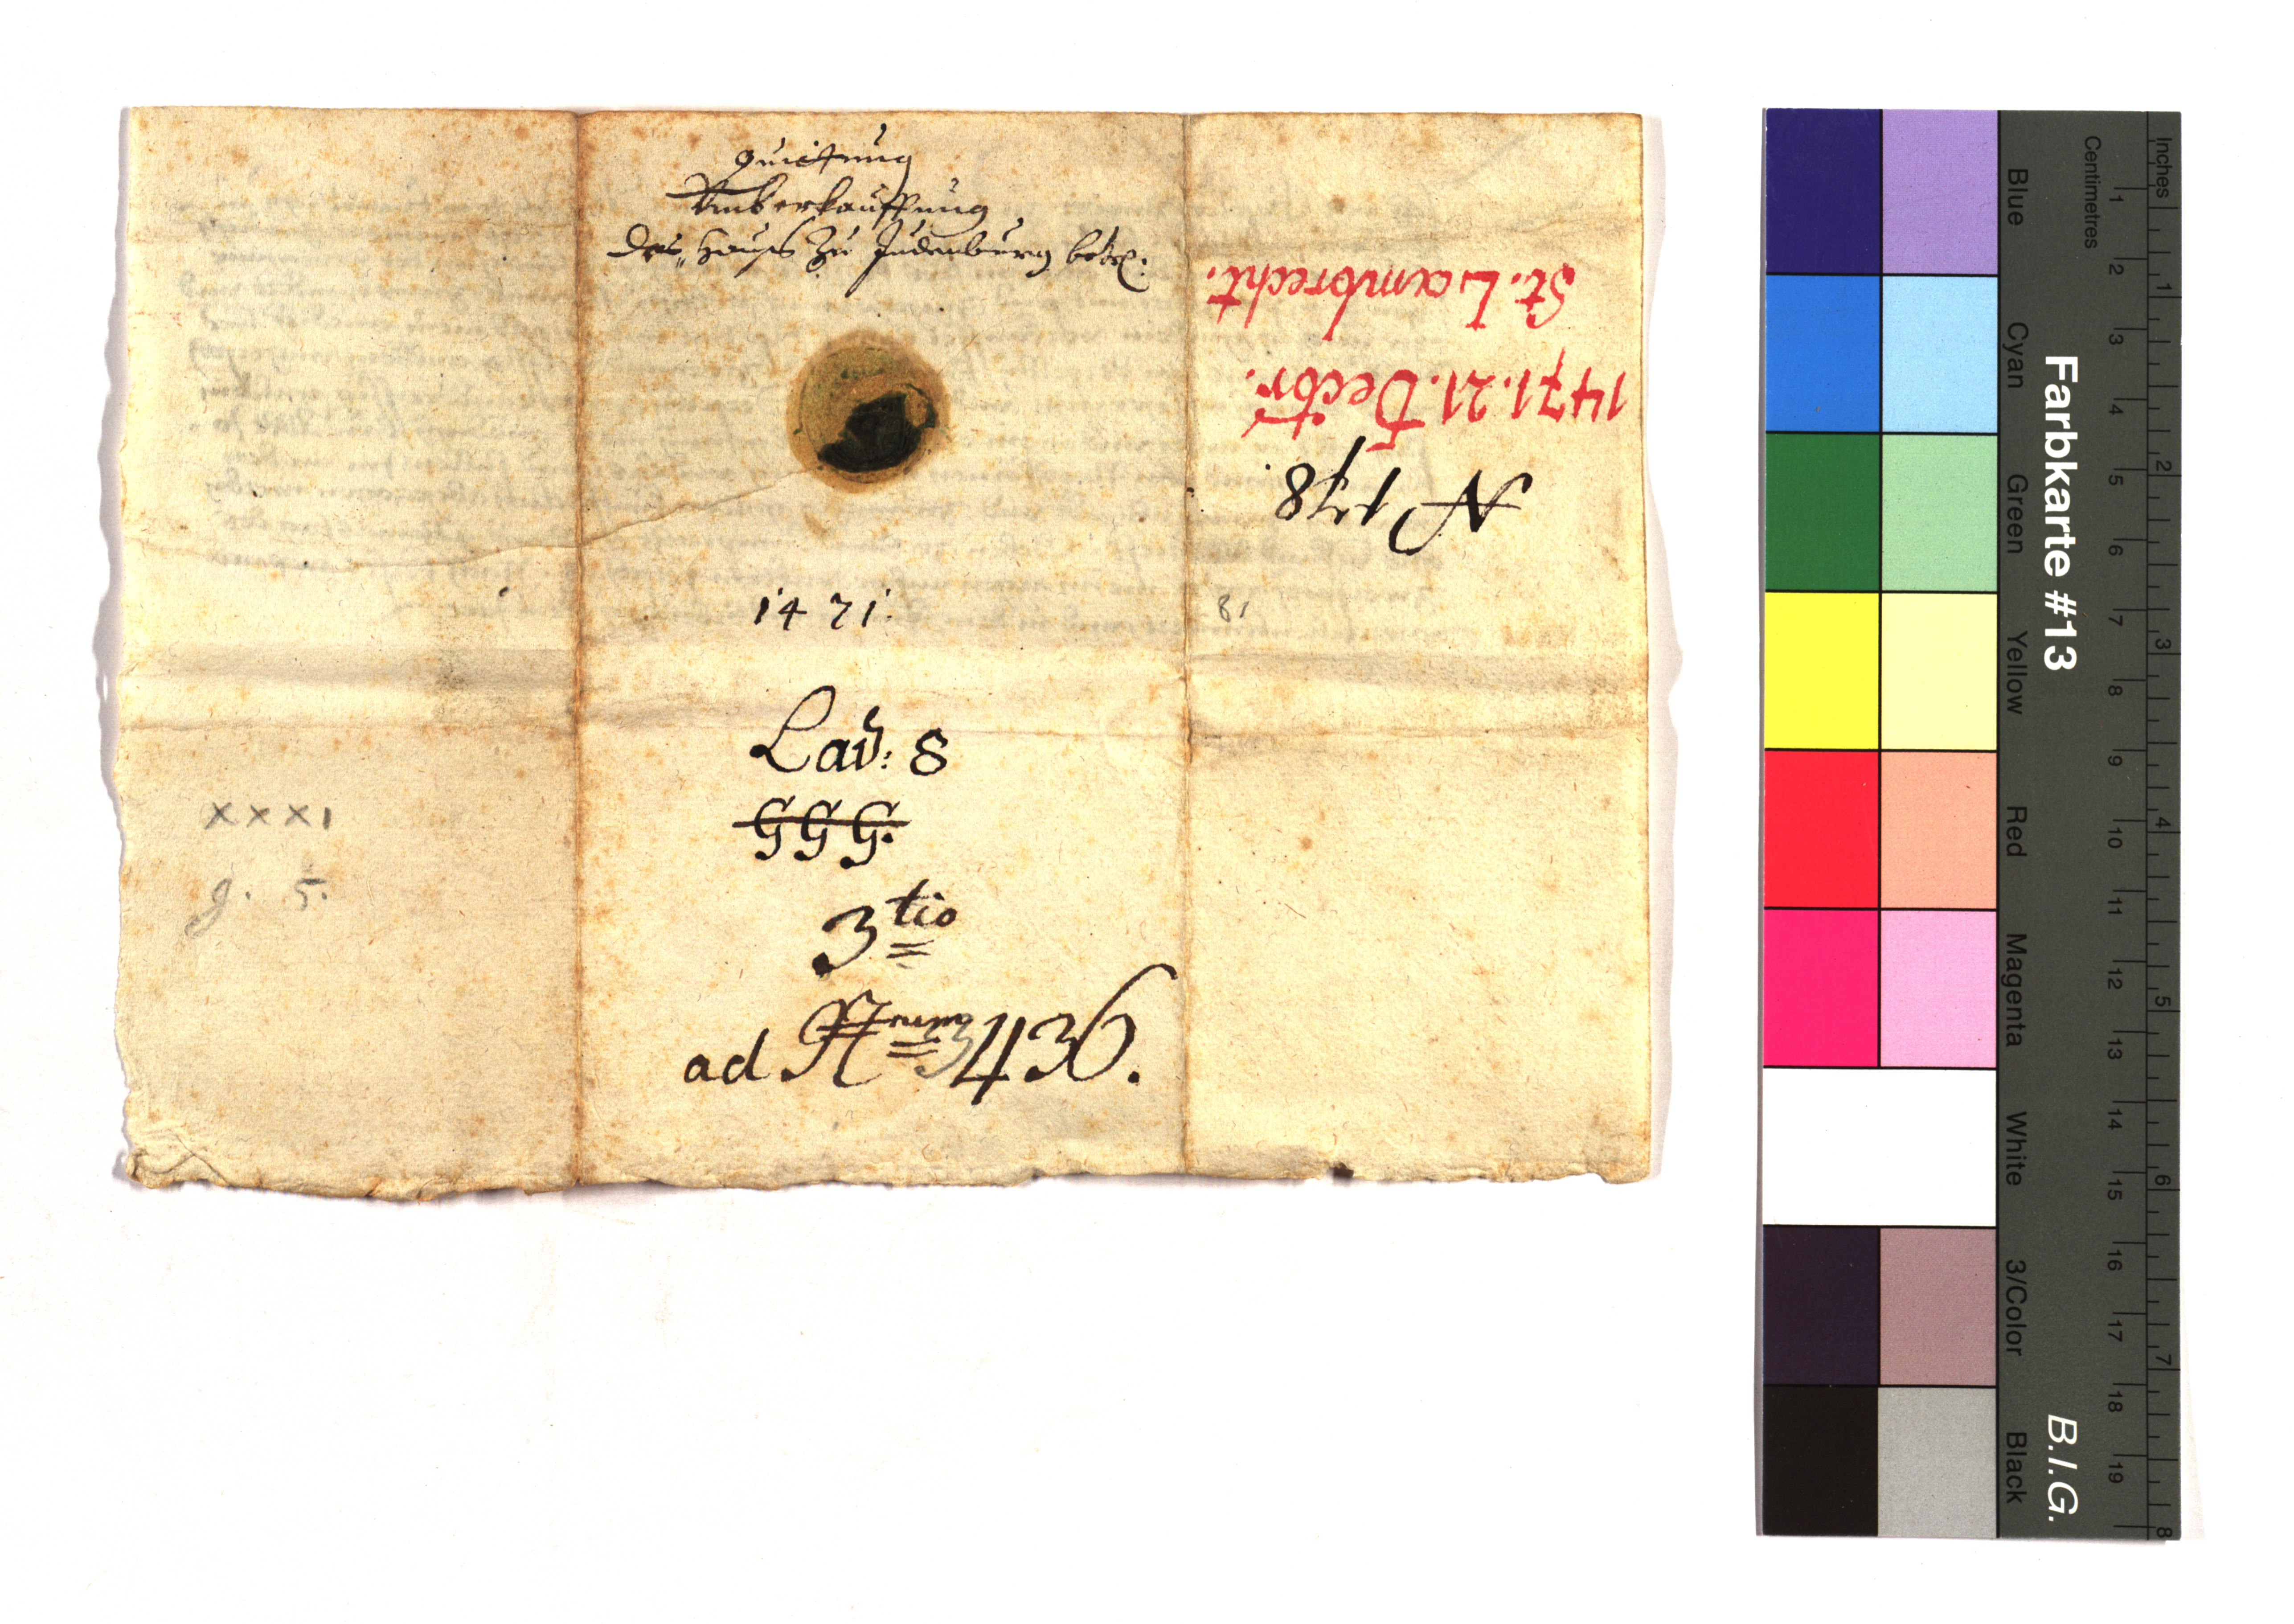 quittung
Verkauffung
des Hauß zu Judenburg betr:
1471.
Lad: 8
GGG.
3tio
ad Nrum 3436.
XXXI
g. 5.
St. Lambrecht.
1471. 21. Decbr.
N 178.
81
Farbkarte #13
B.I.G.
Blue
Cyan
Green
Yellow
Red
Magenta
White
3/Color
Black
Centimetres
1 2 3 4 5 6 7 8 9 10 11 12 13 14 15 16 17 18 19
Inches
1 2 3 4 5 6 7 8